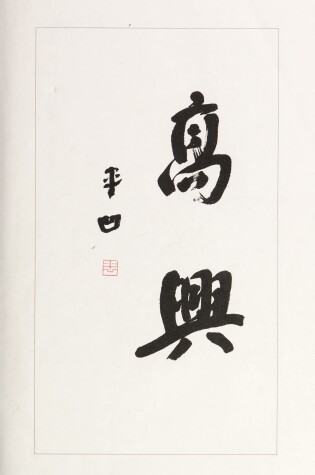 高興
平凹